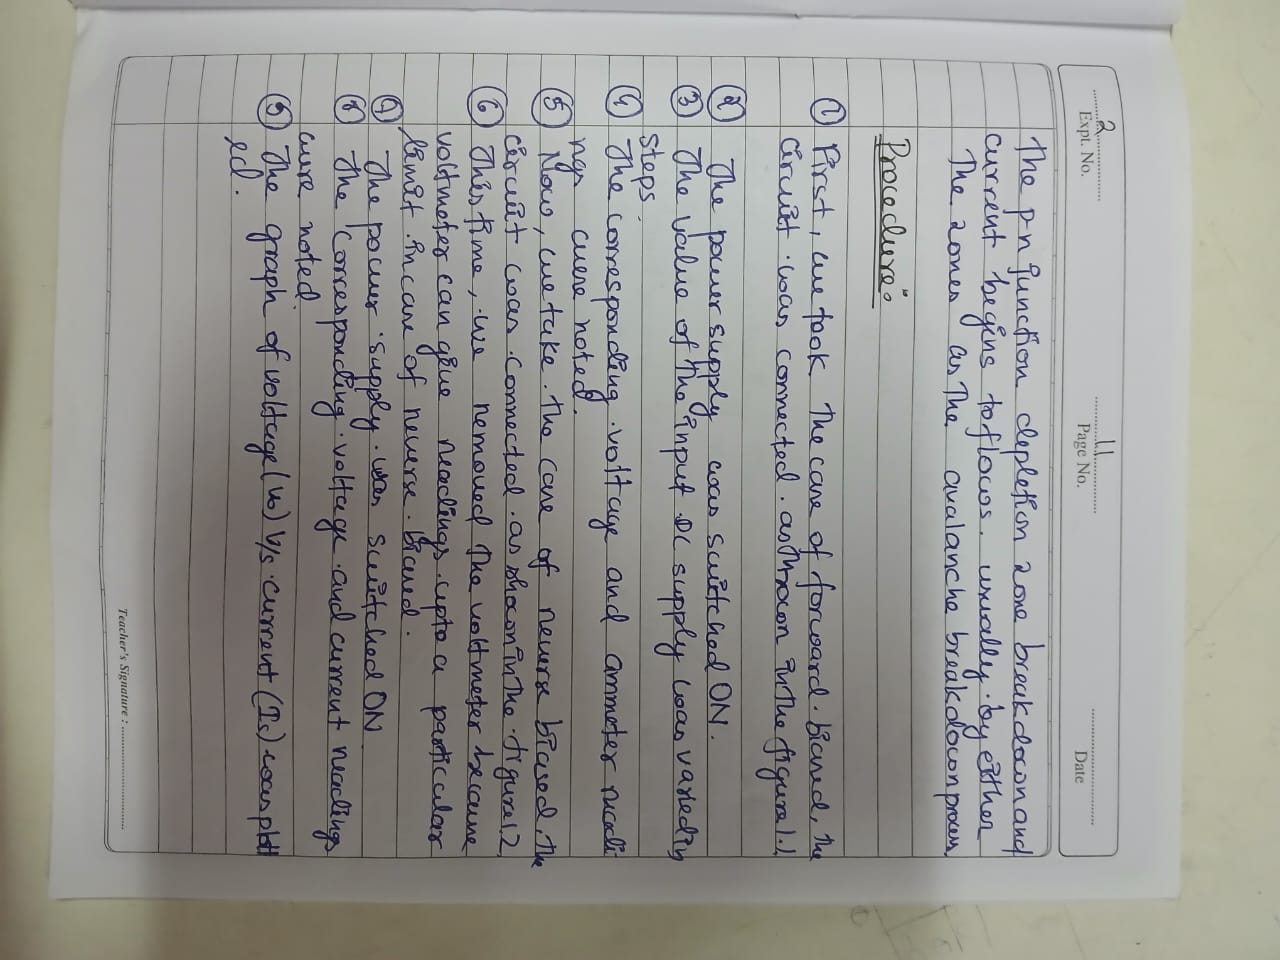 2
Expt. No.
11
Page No.
Date
The pn junction depletion zone breakdown and
current begins to flows. usually by either
The zones as The avalanche breakdown process,
Procedure:
① First, we took The case of forward. biased, The
circuit was connected. as shown in the figure 1.1
② The power supply was switched ON.
③ The value of the input DC supply was varied in
steps.
④ The corresponding voltage and ammeter readi
ngs were noted.
⑤ Now, we take. the case of reverse biased, The
circuit was connected. as shown in The figure 1.2.
⑥ This time, we removed The voltmeter because
voltmeter can give readings upto a particular
limit. in case of reverse. biased.
⑦ The power supply was switched ON
⑧ The corresponding voltage and current readings
were noted.
⑨ The graph of voltage (V) V/s current (Is) was plott
ed.
Teacher's Signature :